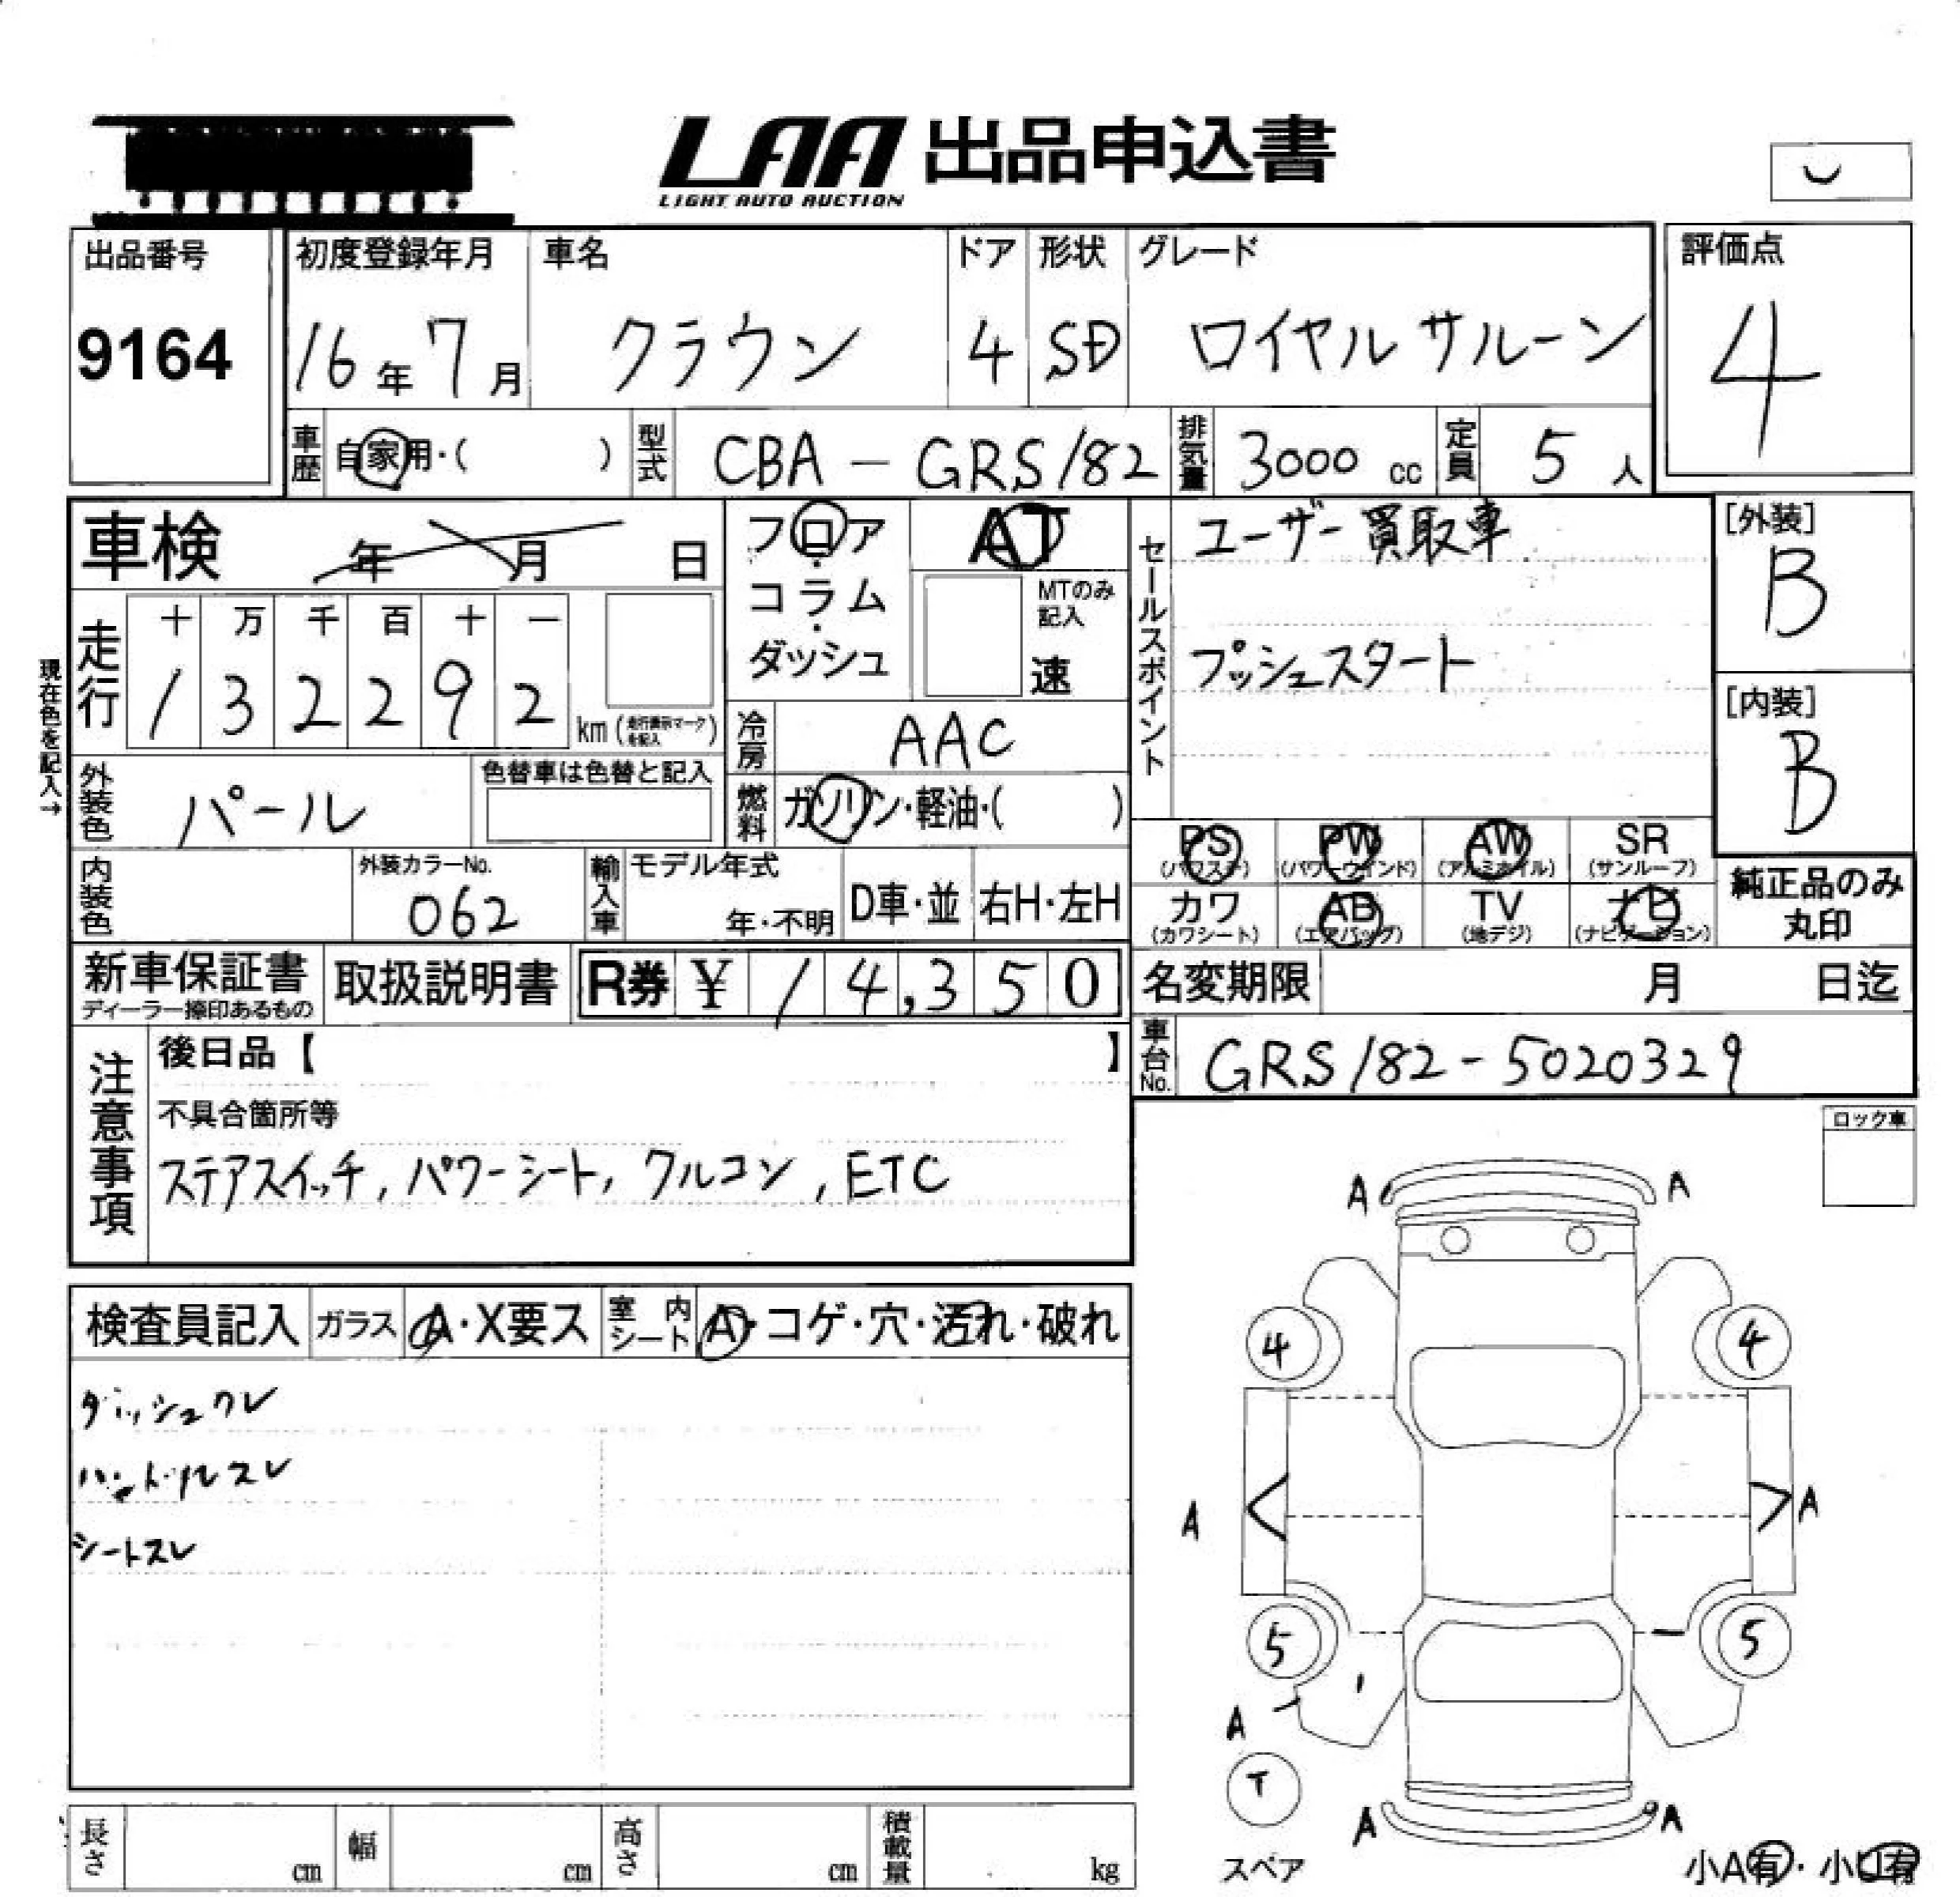 LAA 出品申込書
LIGHT AUTO AUCTION
出品番号 初度登録年月 車名 ドア 形状 グレード 評価点
9164 16年 7月 クラウン 4 SD ロイヤルサルーン 4
車歴 自家用・( ) 型式 CBA-GRS182 排気量 3000cc 定員 5人
車検 年 月 日 フロア AT セールスポイント ユーザー買取車 [外装]
コラム MTのみ記入 B
走行 十 万 千 百 十 一
1 3 2 2 9 2 km (走行表示マークを記入) ダッシュ 速 プッシュスタート [内装]
現在色を記入→ 冷房 AAC B
外装色 パール 色替車は色替と記入 燃料 ガソリン・軽油・( )
PS (パワステ) PW (パワーウインド) AW (アルミホイル) SR (サンルーフ) 純正品のみ
内装色 外装カラーNo. 062 輸入車 モデル年式 年・不明 D車・並 右H・左H
カワ (カワシート) AB (エアバッグ) TV (地デジ) ナビ (ナビゲーション) 丸印
新車保証書 取扱説明書 R券 ¥ 14,350 名変期限 月 日迄
ディーラー捺印あるもの
注意事項 後日品【 】 車台No. GRS182-5020329
不具合箇所等 ロック車
ステアスイッチ, パワーシート, クルコン, ETC
検査員記入 ガラス A・X要ス 室内シート A・コゲ・穴・汚れ・破れ
ダッシュワレ
ハンドルスレ
シートスレ
A A
4 4
A A
5 5
A
T
スペア
A A
小A有・小U有
長さ cm 幅 cm 高さ cm 積載量 kg